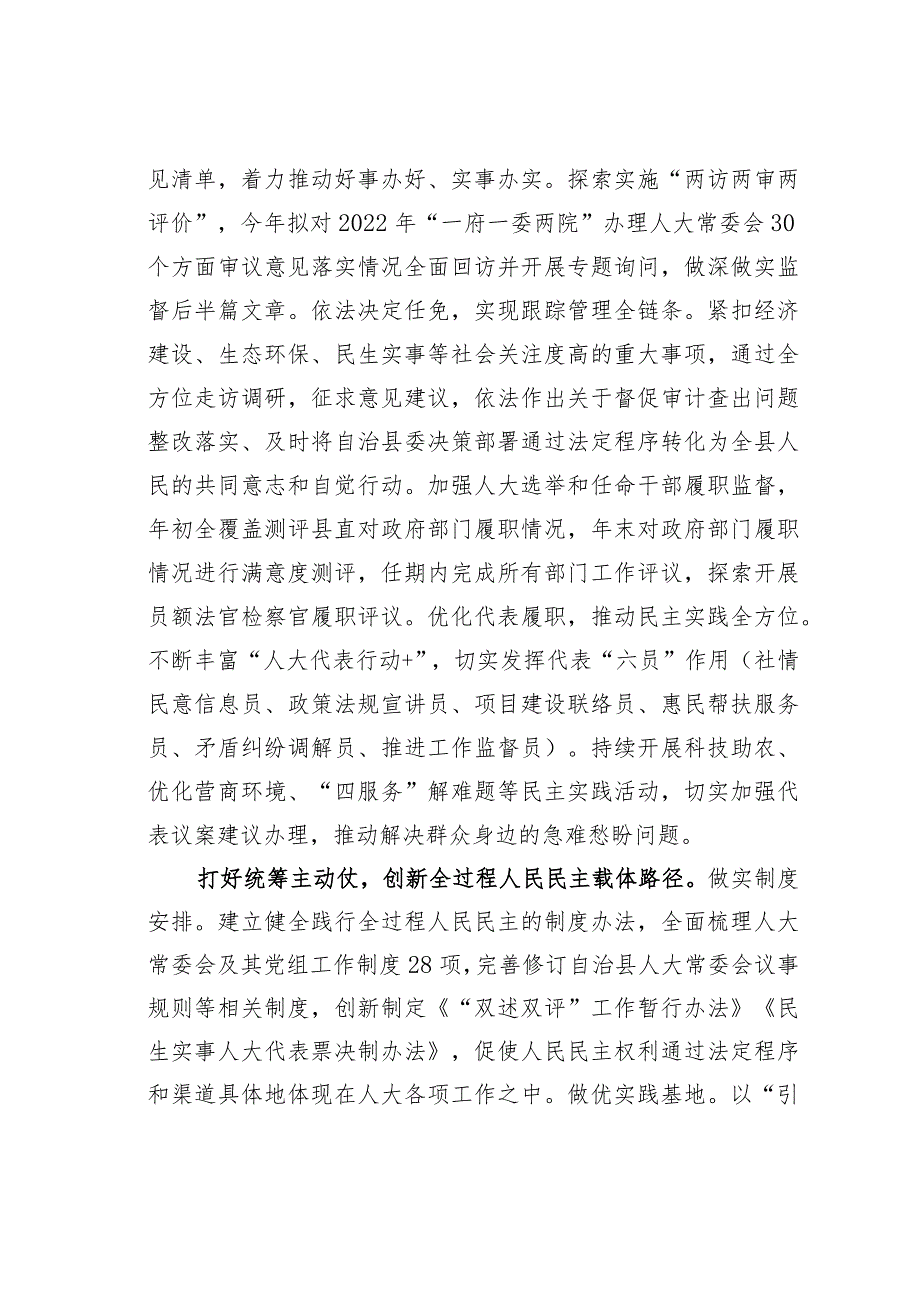 见清单，着力推动好事办好、实事办实。探索实施“两访两审两
评价”，今年拟对 2022 年“一府一委两院”办理人大常委会 30
个方面审议意见落实情况全面回访并开展专题询问，做深做实监
督后半篇文章。依法决定任免，实现跟踪管理全链条。紧扣经济
建设、生态环保、民生实事等社会关注度高的重大事项，通过全
方位走访调研，征求意见建议，依法作出关于督促审计查出问题
整改落实、及时将自治县委决策部署通过法定程序转化为全县人
民的共同意志和自觉行动。加强人大选举和任命干部履职监督，
年初全覆盖测评县直对政府部门履职情况，年末对政府部门履职
情况进行满意度测评，任期内完成所有部门工作评议，探索开展
员额法官检察官履职评议。优化代表履职，推动民主实践全方位。
不断丰富“人大代表行动+”，切实发挥代表“六员”作用（社情
民意信息员、政策法规宣讲员、项目建设联络员、惠民帮扶服务
员、矛盾纠纷调解员、推进工作监督员）。持续开展科技助农、
优化营商环境、“四服务”解难题等民主实践活动，切实加强代
表议案建议办理，推动解决群众身边的急难愁盼问题。
打好统筹主动仗，创新全过程人民民主载体路径。做实制度
安排。建立健全践行全过程人民民主的制度办法，全面梳理人大
常委会及其党组工作制度 28 项，完善修订自治县人大常委会议事
规则等相关制度，创新制定《“双述双评”工作暂行办法》《民
生实事人大代表票决制办法》，促使人民民主权利通过法定程序
和渠道具体地体现在人大各项工作之中。做优实践基地。以“引